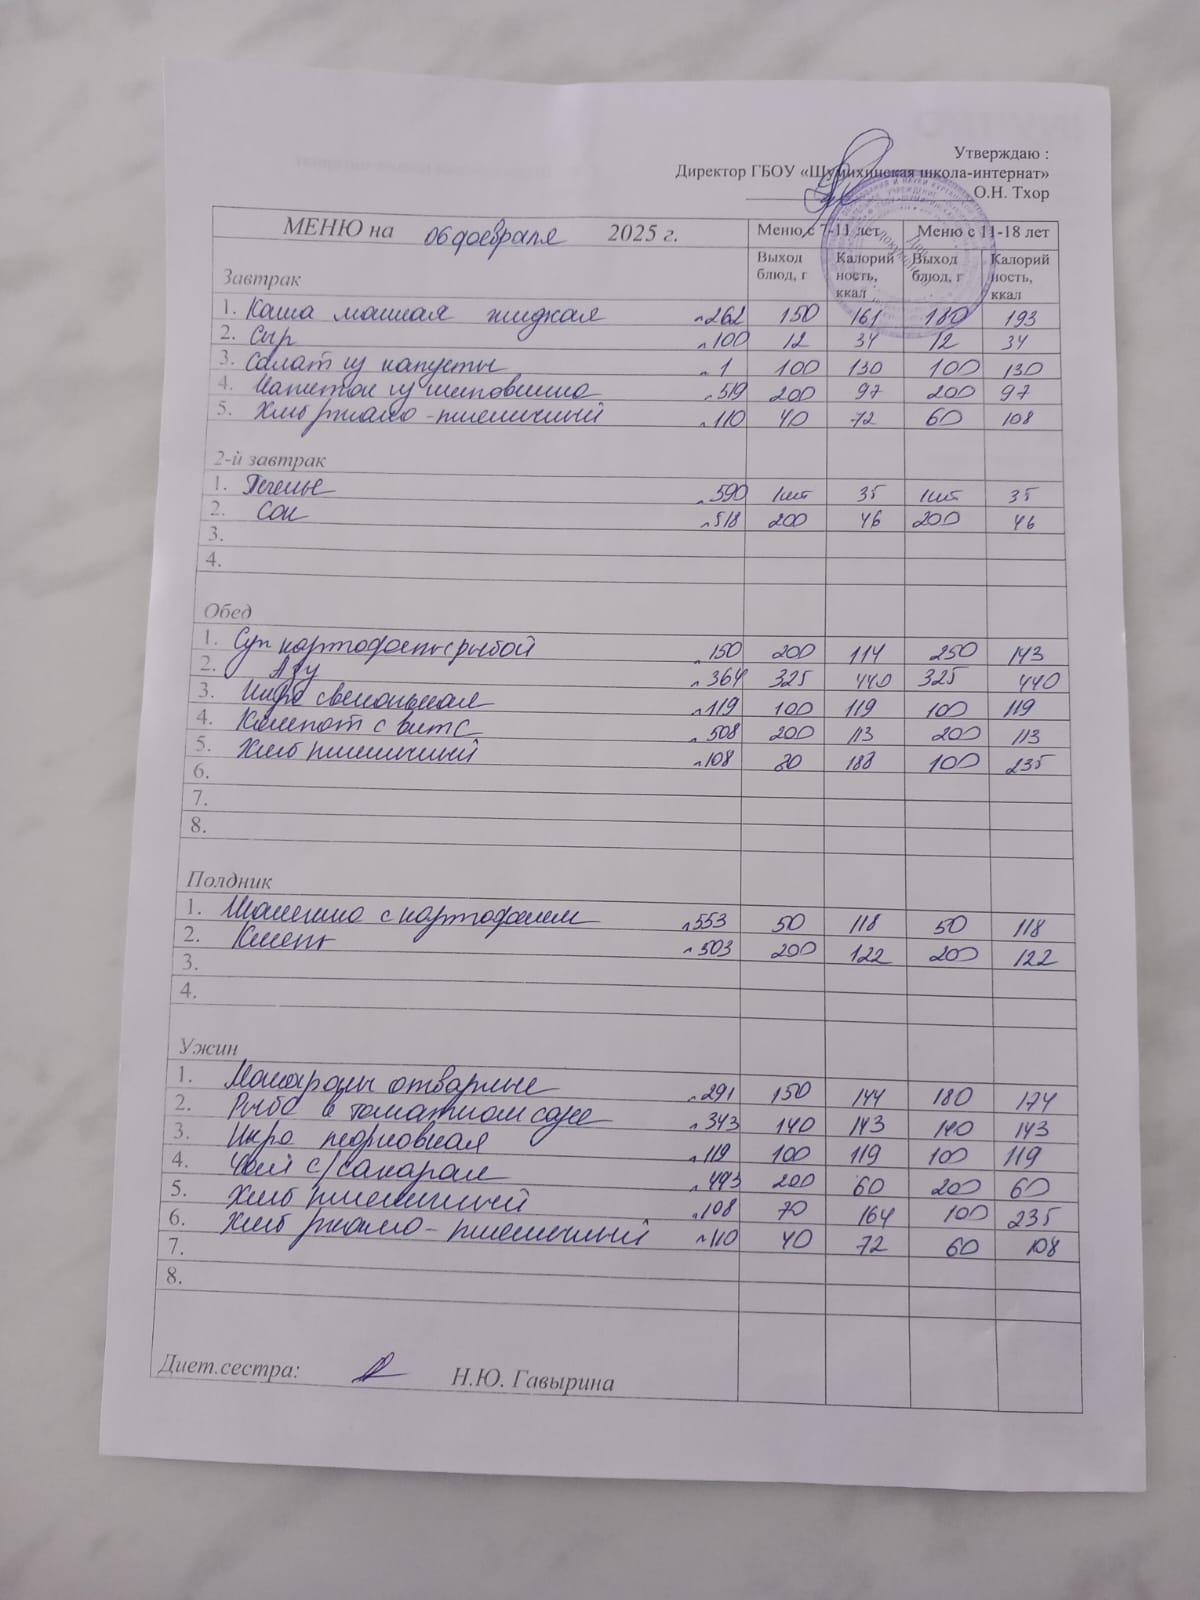 Утверждаю :
Директор ГБОУ «Шумихинская школа-интернат»
О.Н. Тхор
МЕНЮ на 06 февраля 2025 г. Меню с 7-11 лет Меню с 11-18 лет
Завтрак Выход блюд, г Калорий ность, ккал Выход блюд, г Калорий ность, ккал
1. Каша манная жидкая 262 150 161 180 193
2. Сыр 100 12 34 12 34
3. Салат из капусты 1 100 130 100 130
4. Напиток из шиповника 519 200 97 200 97
5. Хлеб ржано-пшеничный 110 40 72 60 108
2-й завтрак
1. Печенье 590 1шт 35 1шт 35
2. Сок 518 200 46 200 46
3.
4.
Обед
1. Суп картофель с рыбой 150 200 114 250 143
2. Азу 364 325 440 325 440
3. Икра свекольная 119 100 119 100 119
4. Компот с вит С 508 200 113 200 113
5. Хлеб пшеничный 108 80 188 100 235
6.
7.
8.
Полдник
1. Шанежка с картофелем 553 50 118 50 118
2. 503 200 122 200 122
3.
4.
Ужин
1. Макароны отварные 291 150 144 180 174
2. Рыба в томатном соусе 343 140 143 140 143
3. Икра морковная 119 100 119 100 119
4. Чай с/сахаром 493 200 60 200 60
5. Хлеб пшеничный 108 70 164 100 235
6. Хлеб ржано-пшеничный 110 40 72 60 108
7.
8.
Диет.сестра: Н.Ю. Гавырина